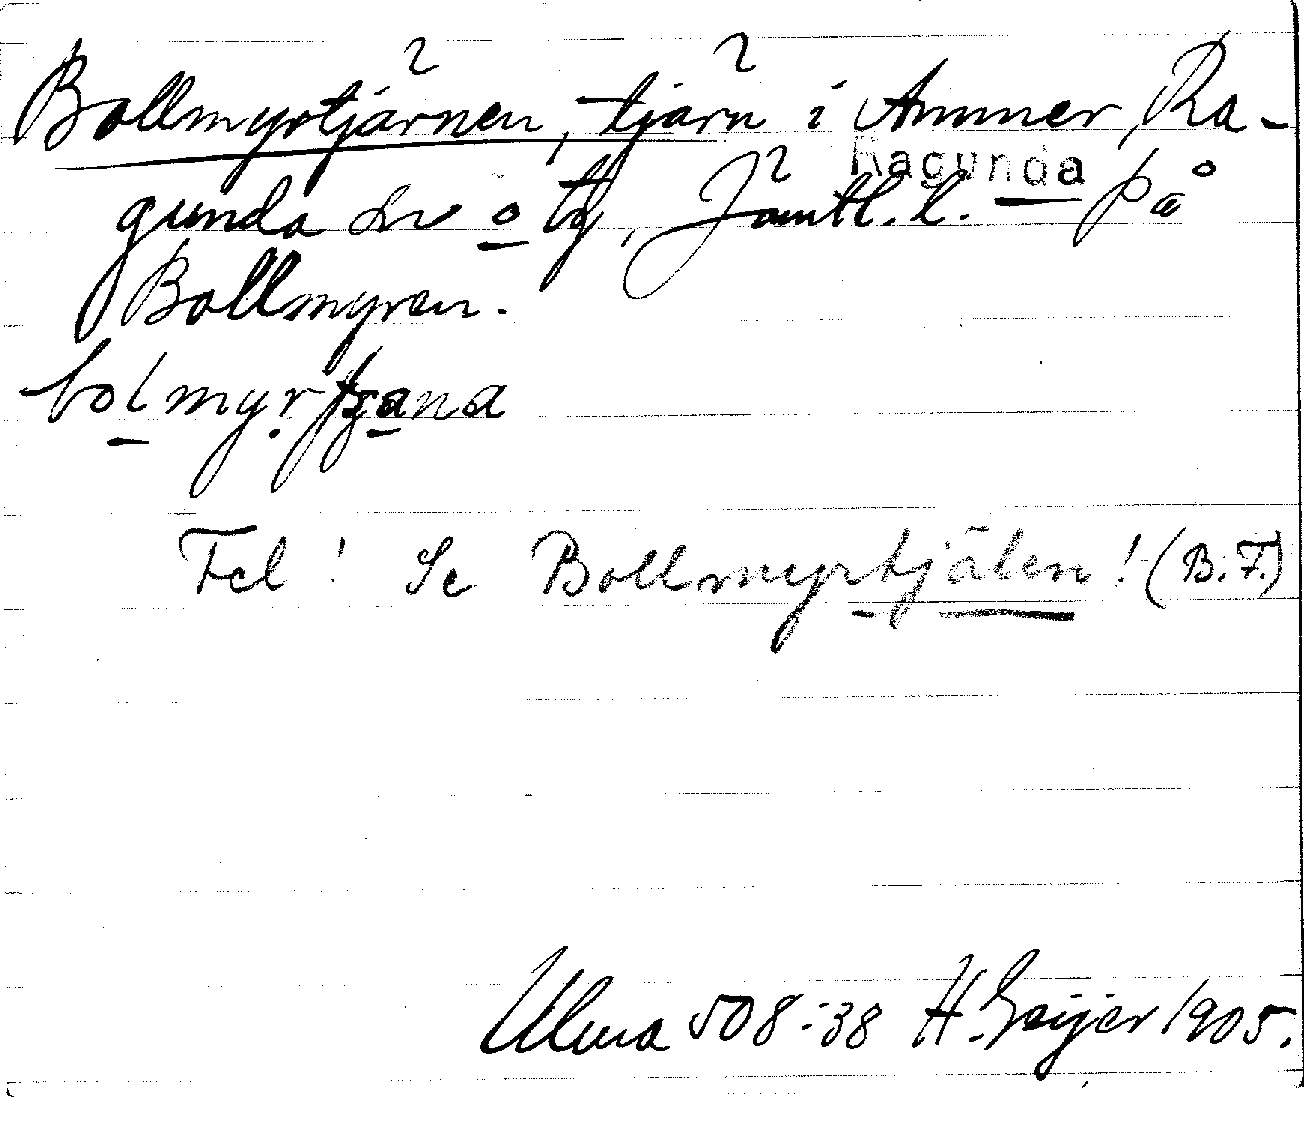 Bollmyrtjärnen, tjärn i Ammer, Ra-
Ragunda
gunda sn o tg, Jämtl. l. — på
Bollmyren.
bolmyrtʃana
Fel! Se Bollmyrtjälen! (B.F.)
Ulma 508:38 H. Geijer 1905.